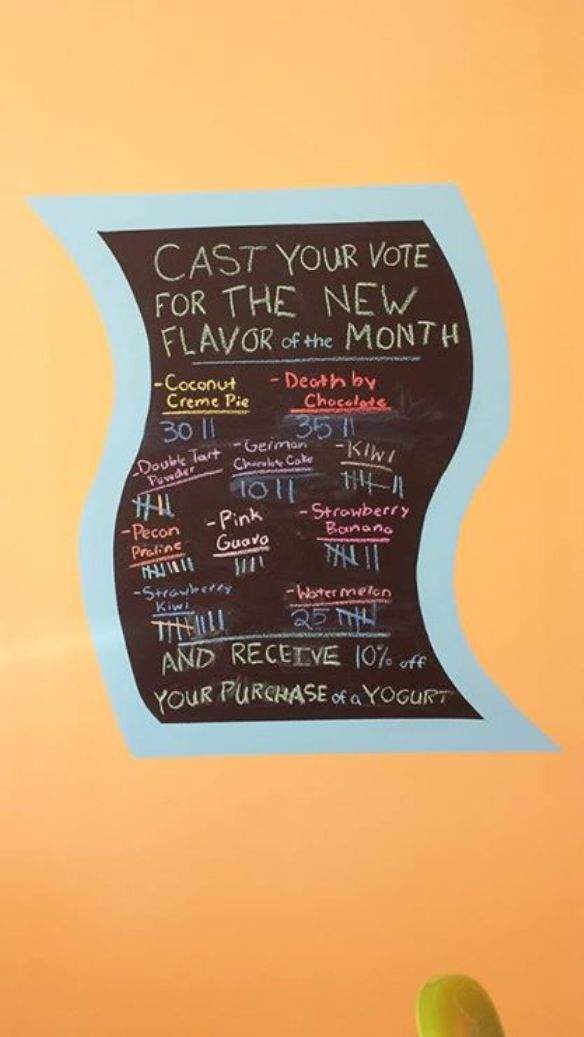 CAST YOUR VOTE
FOR THE NEW
FLAVOR of the MONTH
-Coconut
Creme Pie
30 ||
-Death by
Chocolate
35 ||
-Double Tart
Powder
-German
Chocolate Cake
10 ||
-KIWI
-Pecan
Praline
-Pink
Guava
||||
-Strawberry
Banana
-Strawberry
Kiwi
-Watermelon
25
AND RECEIVE 10% off
YOUR PURCHASE of a YOGURT